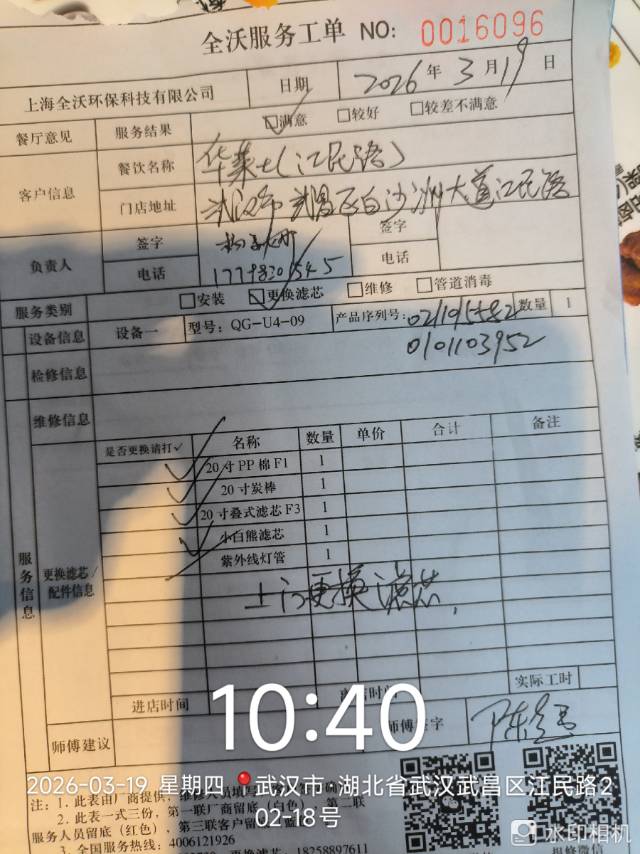 全沃服务工单 NO: 0016096
上海全沃环保科技有限公司 日期 2026年3月19日
餐厅意见 服务结果 ☑满意 □较好 □较差不满意
客户信息 餐饮名称 华莱士(江民路)
门店地址 武汉市武昌区白沙洲大道江民路
负责人 签字 签字
电话 电话
服务类别 □安装 ☑更换滤芯 □维修 □管道消毒
设备信息 设备一 型号: QG-U4-09 产品序列号: 数量 1
0101103952
检修信息
维修信息
是否更换请打✓ 名称 数量 单价 合计 备注
✓ 20寸PP棉F1 1
✓ 20寸炭棒 1
✓ 20寸叠式滤芯F3 1
✓ 小白熊滤芯 1
紫外线灯管 1
服务信息 更换滤芯/配件信息
上门更换滤芯
实际工时
进店时间 时间
师傅建议 签字
10:40
2026-03-19 星期四 武汉市·湖北省武汉武昌区江民路2
02-18号
注: 1. 此表由厂商提供,
2. 此表一式三份, 第一联厂商留底(白色), 第二联
服务人员留底(红色), 第三联客户留
3. 全国服务热线: 4006121926
18258897611
报修微信
水印相机